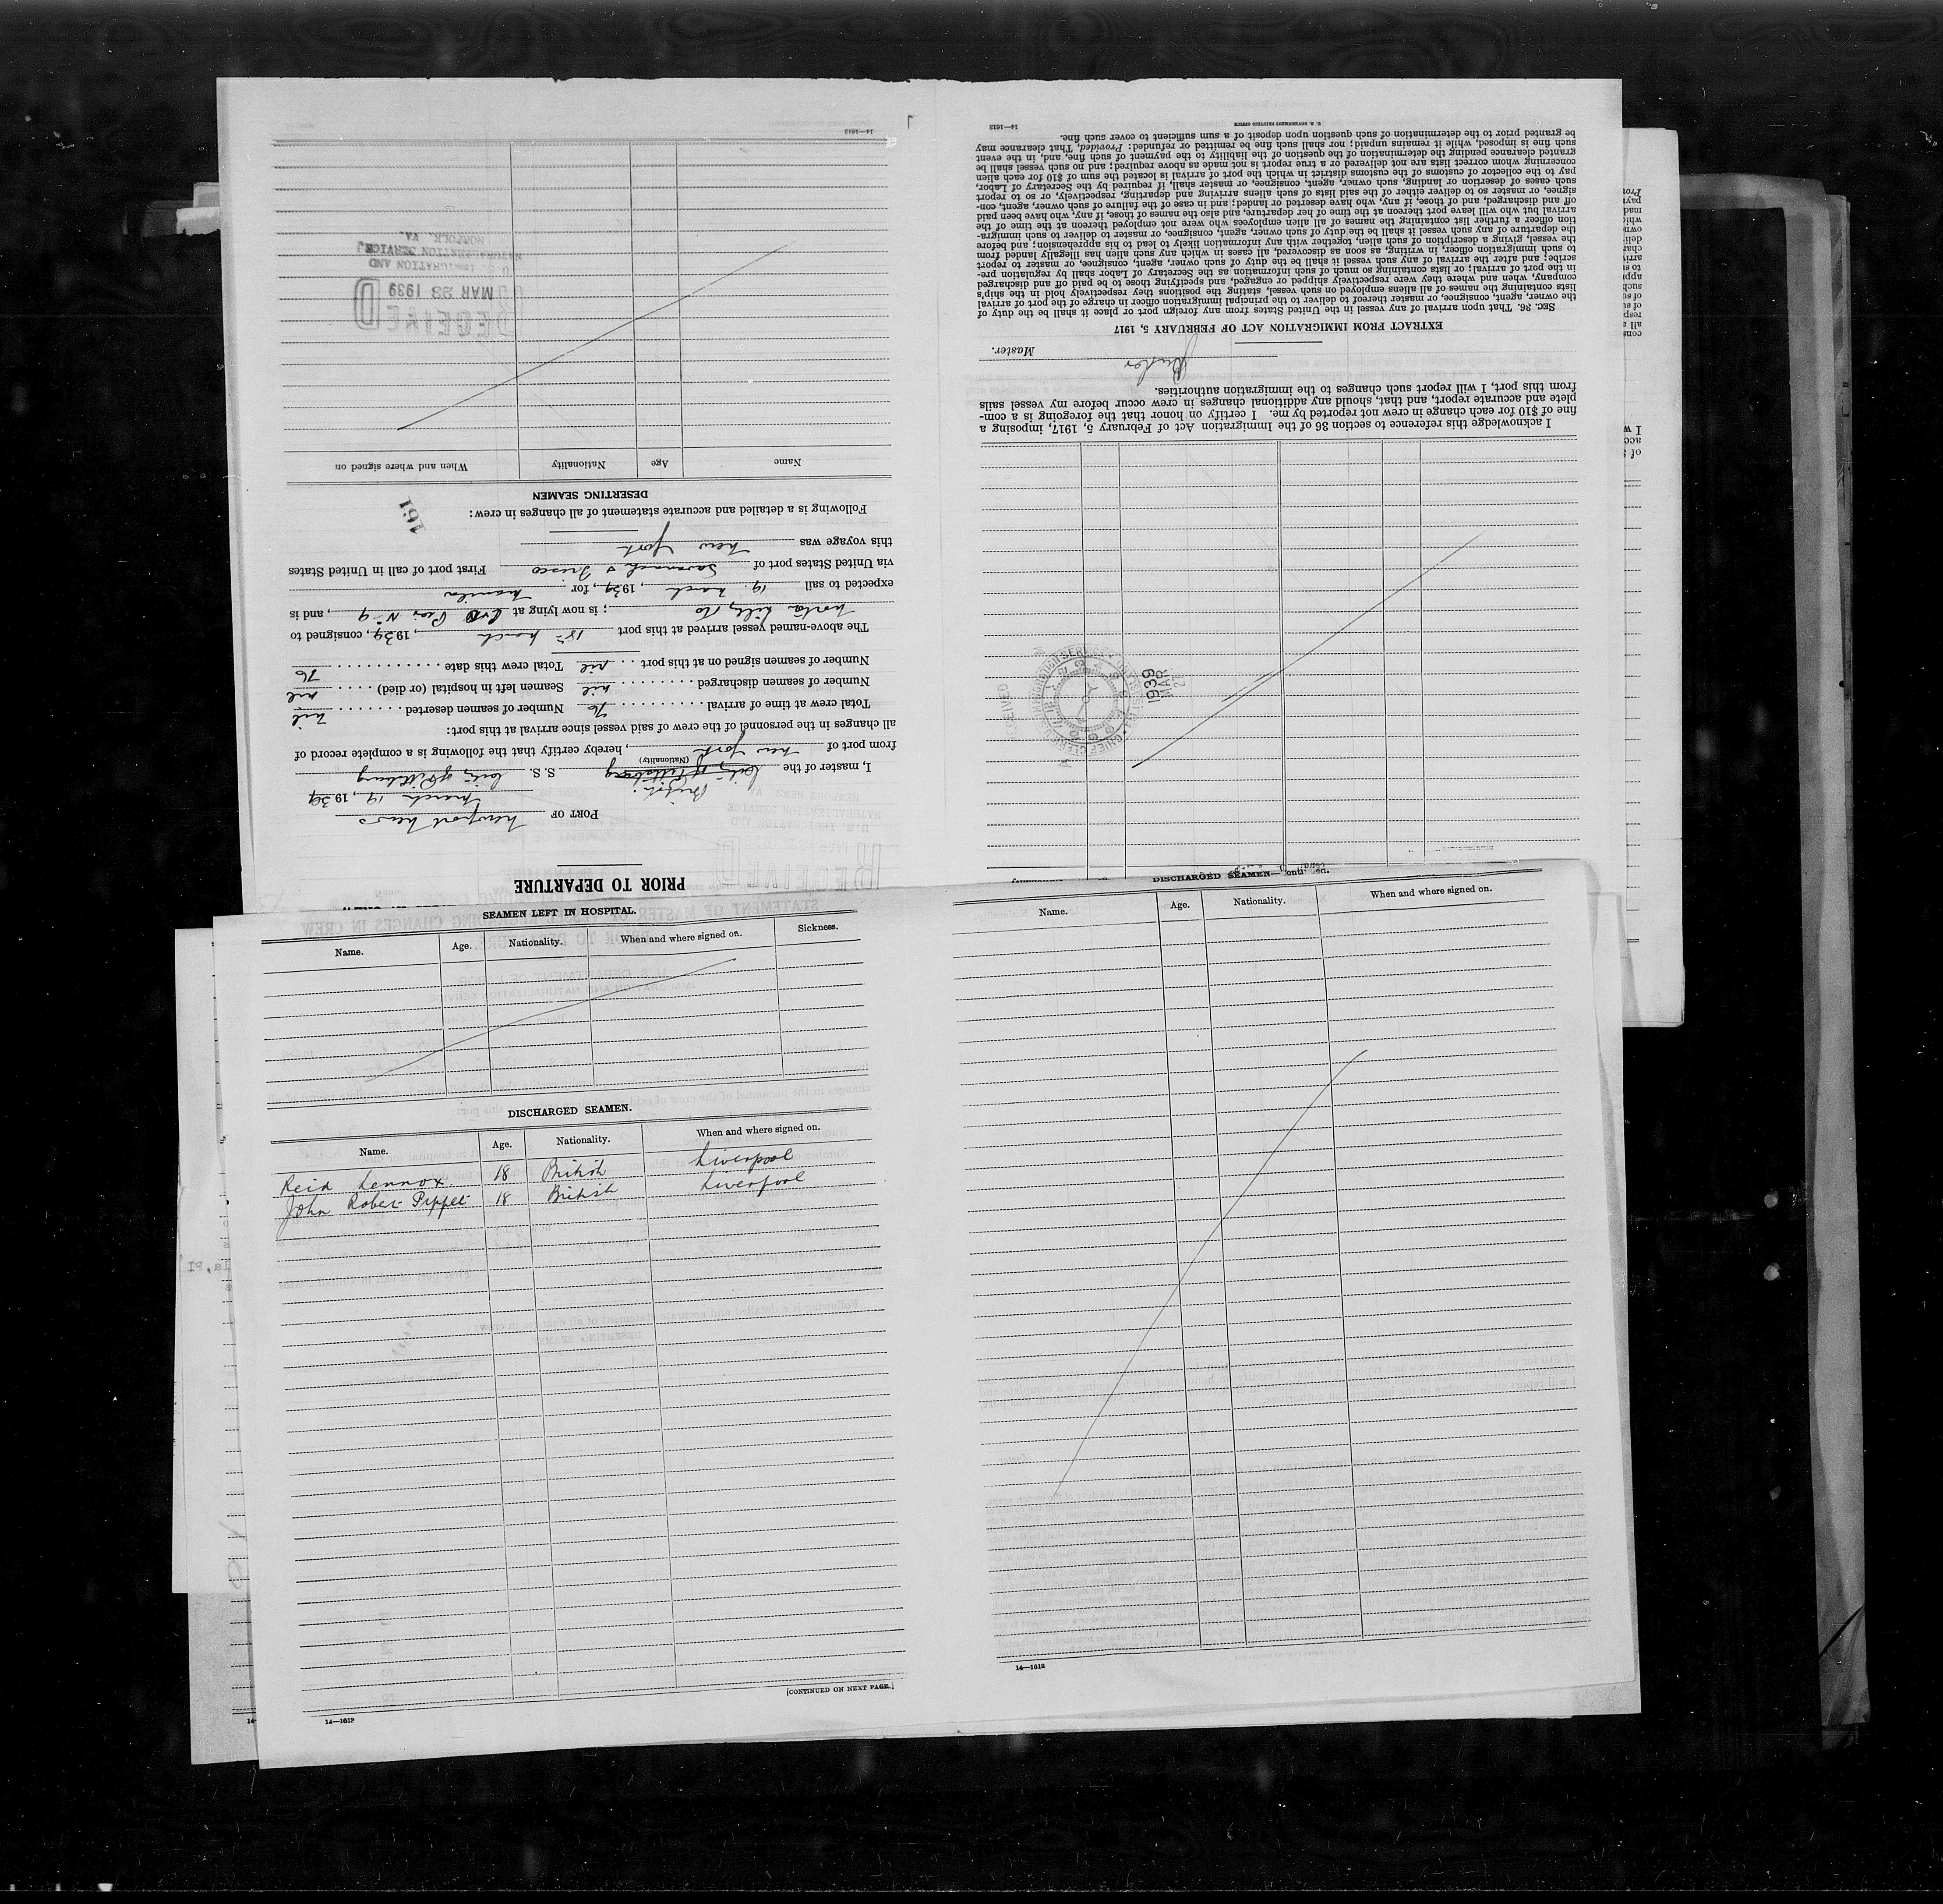 PRIOR TO DEPARTURE
PORT OF Newport News
March 19, 1939
British.
I, master of the S. S. City of Pittsburg
(Nationality)
from port of New York, hereby certify that the following is a complete record of
all changes in the personnel of the crew of said vessel since arrival at this port:
Total crew at time of arrival 76 Number of seamen deserted nil
Number of seamen discharged nil Seamen left in hospital (or died) nil
Number of seamen signed on at this port nil Total crew this date 76
The above-named vessel arrived at this port 18th March, 1939, consigned to
; is now lying at Pier No 9, and is
expected to sail 19 March, 1939, for Manila
via United States port of Savannah & Frisco First port of call in United States
this voyage was New York
Following is a detailed and accurate statement of all changes in crew:
161
DESERTING SEAMEN
Name Age Nationality When and where signed on
RECEIVED
MAR 23 1939
U. S. IMMIGRATION AND
NATURALIZATION SERVICE
NORFOLK, VA.
14—1613
1939
MAR
I acknowledge this reference to section 36 of the Immigration Act of February 5, 1917, imposing a
fine of $10 for each change in crew not reported by me. I certify on honor that the foregoing is a com-
plete and accurate report, and that, should any additional changes in crew occur before my vessel sails
from this port, I will report such changes to the immigration authorities.
Master.
EXTRACT FROM IMMIGRATION ACT OF FEBRUARY 5, 1917
SEC. 36. That upon arrival of any vessel in the United States from any foreign port or place it shall be the duty of
the owner, agent, consignee, or master thereof to deliver to the principal immigration officer in charge of the port of arrival
lists containing the names of all aliens employed on such vessel, stating the positions they respectively hold in the ship's
company, when and where they were respectively shipped or engaged, and specifying those to be paid off and discharged
in the port of arrival; or lists containing so much of such information as the Secretary of Labor shall by regulation pre-
scribe; and after the arrival of any such vessel it shall be the duty of such owner, agent, consignee, or master to report
to such immigration officer, in writing, as soon as discovered, all cases in which any such alien has illegally landed from
the vessel, giving a description of such alien, together with any information likely to lead to his apprehension; and before
the departure of any such vessel it shall be the duty of such owner, agent, consignee, or master to deliver to such immigra-
tion officer a further list containing the names of all alien employees who were not employed thereon at the time of the
arrival but who will leave port thereon at the time of her departure, and also the names of those, if any, who have been paid
off and discharged, and of those, if any, who have deserted or landed; and in case of the failure of such owner, agent, con-
signee, or master so to deliver either of the said lists of such aliens arriving and departing, respectively, or so to report
such cases of desertion or landing, such owner, agent, consignee, or master shall, if required by the Secretary of Labor,
pay to the collector of customs of the customs district in which the port of arrival is located the sum of $10 for each alien
concerning whom correct lists are not delivered or a true report is not made as above required; and no such vessel shall be
granted clearance pending the determination of the question of the liability to the payment of such fine, and, in the event
such fine is imposed, while it remains unpaid; nor shall such fine be remitted or refunded: Provided, That clearance may
be granted prior to the determination of such question upon deposit of a sum sufficient to cover such fine.
U. S. GOVERNMENT PRINTING OFFICE 14—1613
SEAMEN LEFT IN HOSPITAL.
Name. Age. Nationality. When and where signed on. Sickness.
DISCHARGED SEAMEN.
Name. Age. Nationality. When and where signed on.
Reid Lennox 18 British Liverpool
John Robert Pippet 18 British Liverpool
[CONTINUED ON NEXT PAGE.]
14—1613
DISCHARGED SEAMEN—Continued.
Name. Age. Nationality. When and where signed on.
14—1613